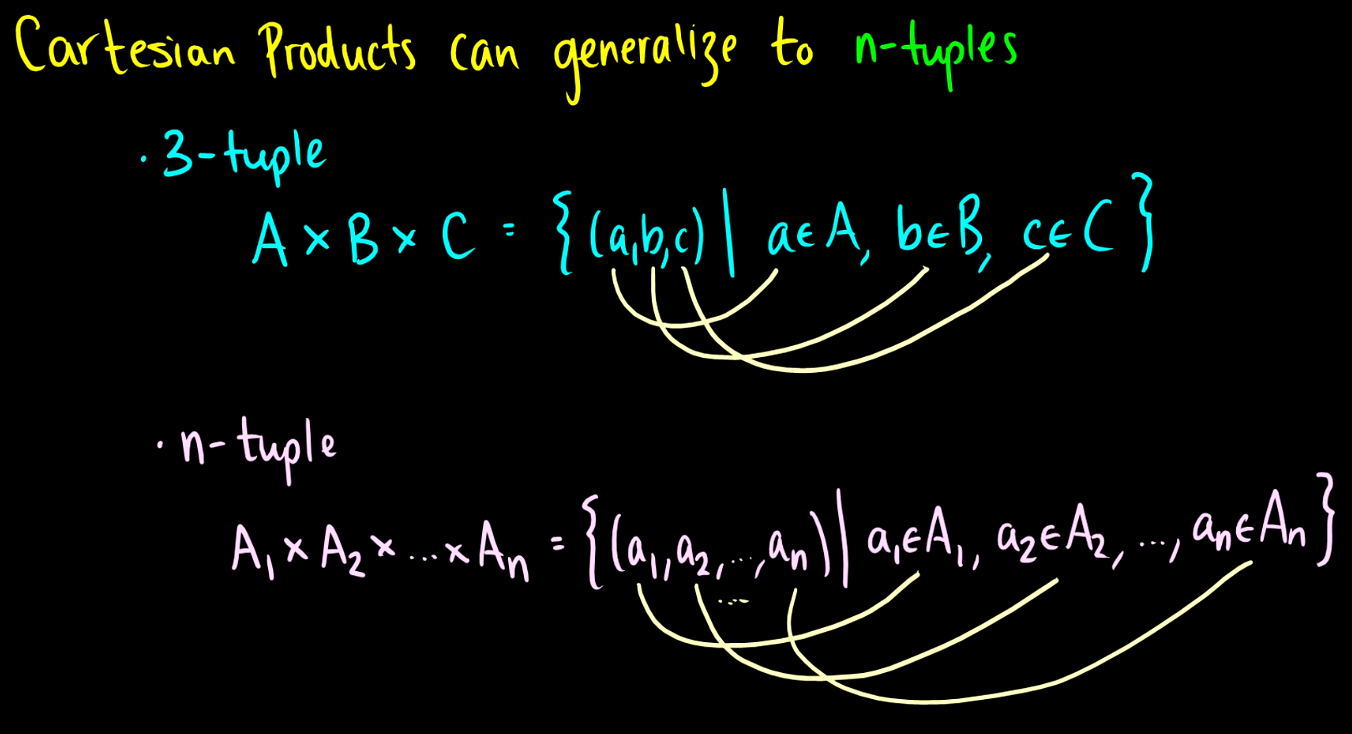 Cartesian Products can generalize to n-tuples
· 3-tuple
A × B × C = {(a,b,c) | a∈A, b∈B, c∈C}
· n-tuple
A₁ × A₂ × ... × Aₙ = {(a₁,a₂,...,aₙ) | a₁∈A₁, a₂∈A₂, ..., aₙ∈Aₙ}
...